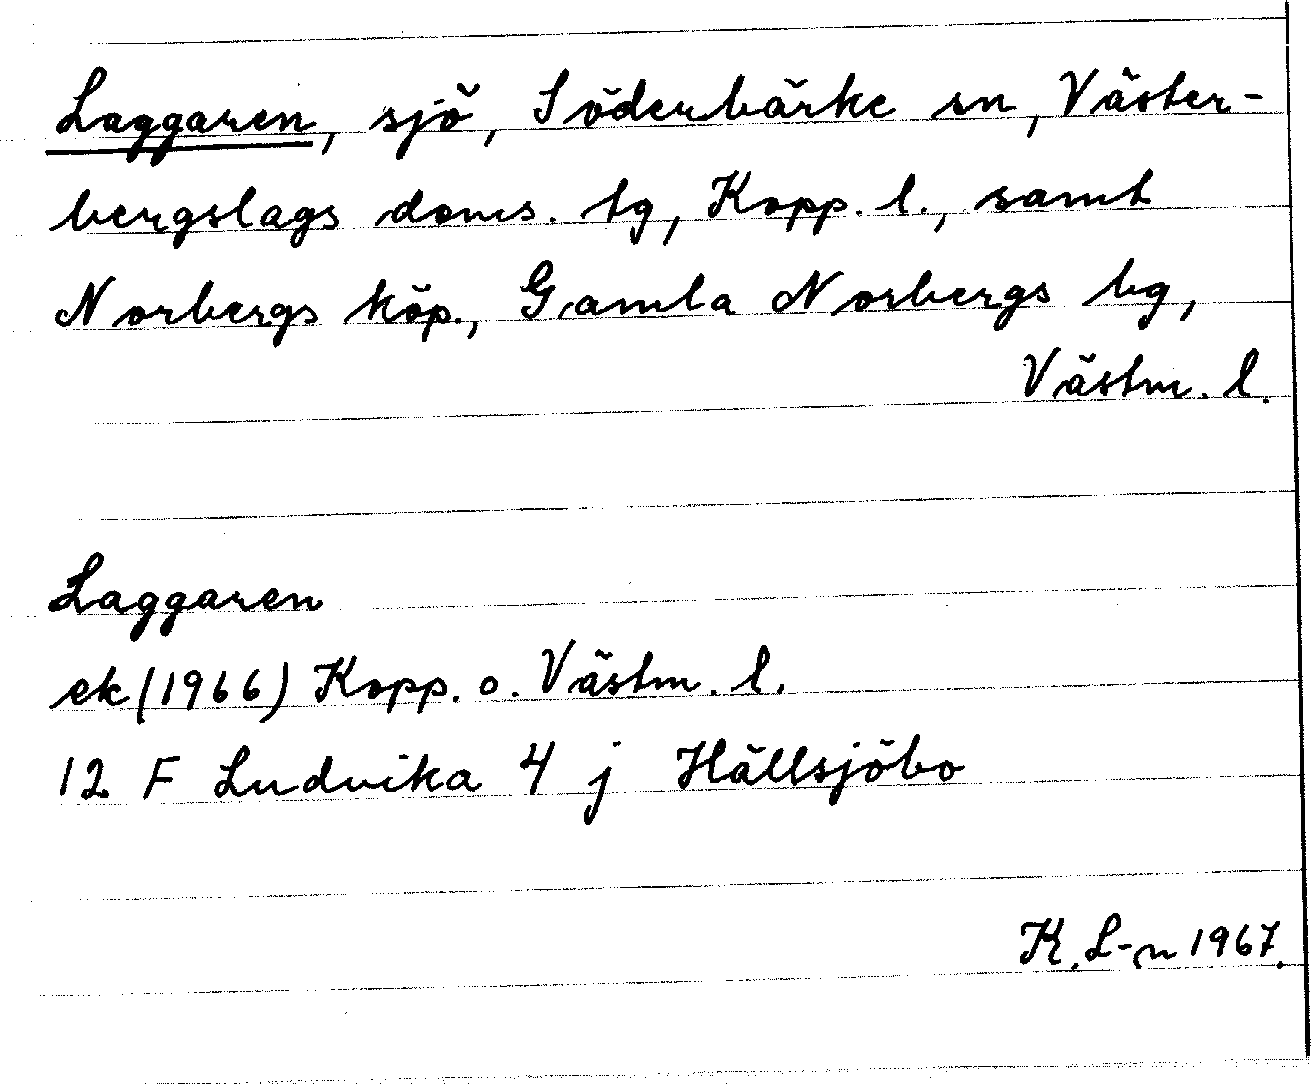 Laggaren, sjö, Söderbärke sn, Väster-
bergslags doms. tg, Kopp. l., samt
Norbergs köp., Gamla Norbergs bg,
Västm. l.
Laggaren
ek (1966) Kopp. o. Västm. l.
12 F Ludvika 4 j Hällsjöbo
K. L-n 1967.